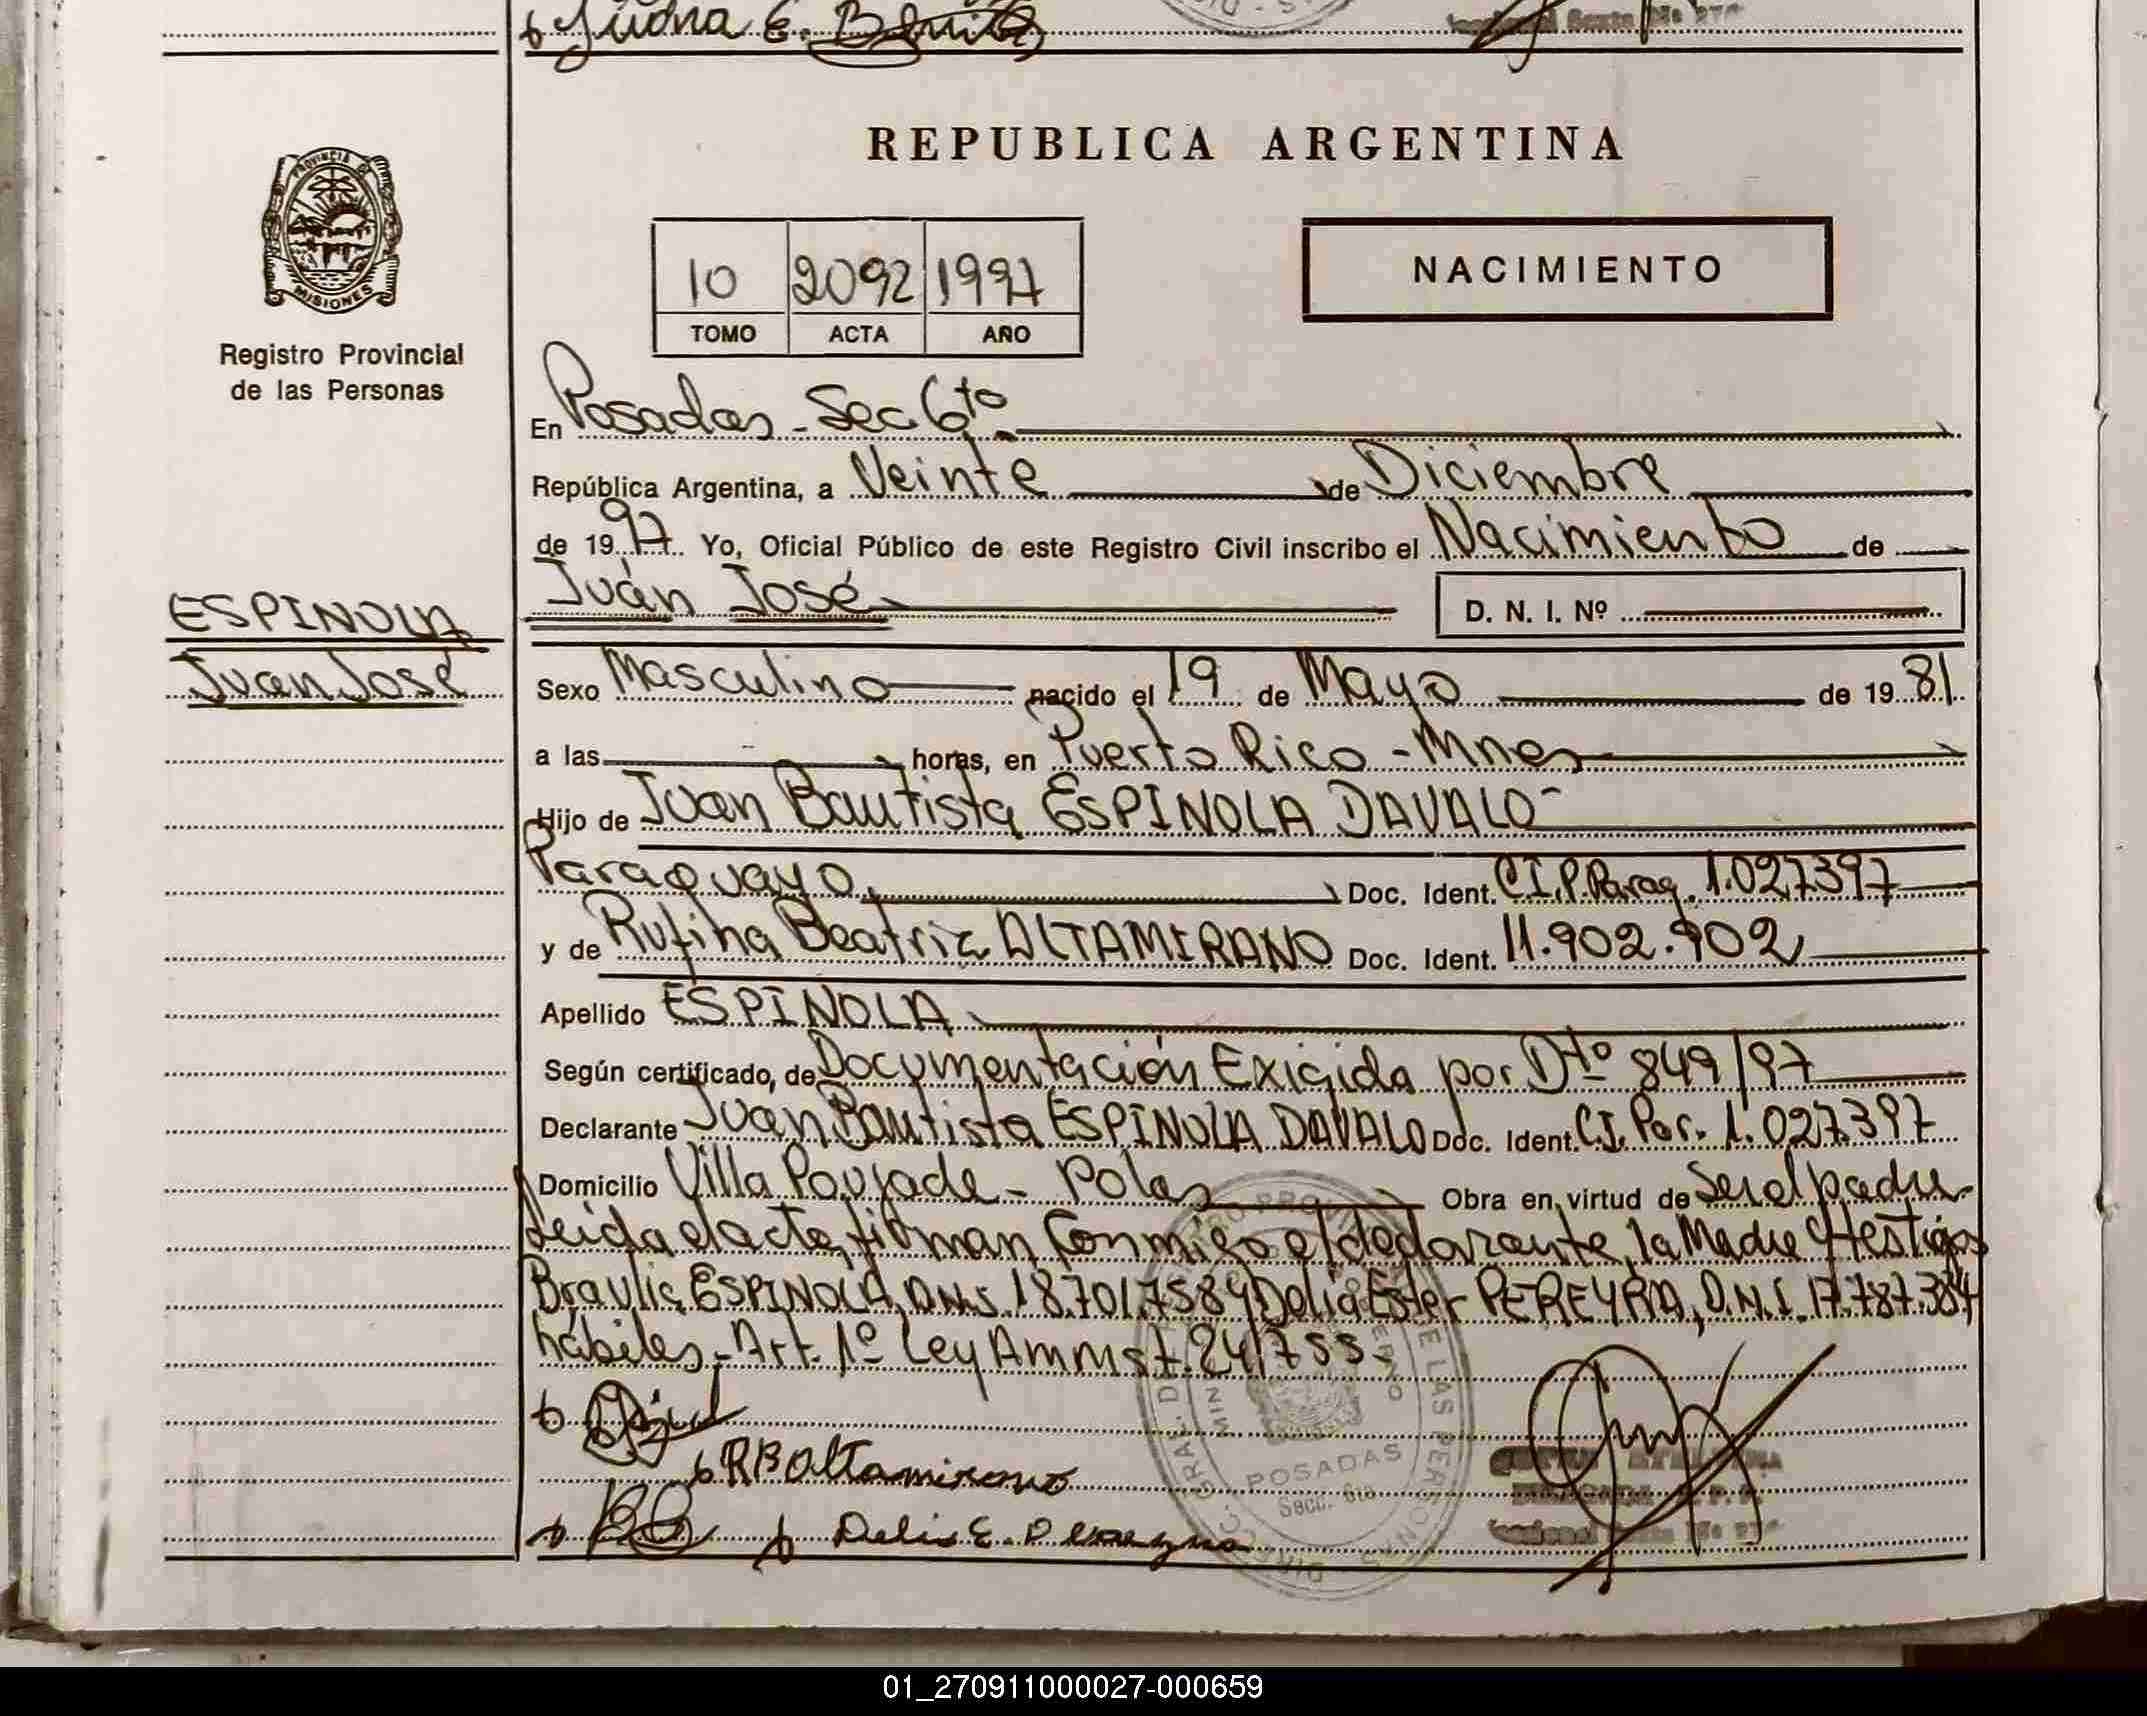 REPUBLICA ARGENTINA
PROVINCIA DE
MISIONES
Registro Provincial
de las Personas
10 2092 1997
TOMO ACTA AÑO
NACIMIENTO
En Posadas - Sec 6to.
República Argentina, a Veinte de Diciembre
de 1997. Yo, Oficial Público de este Registro Civil inscribo el Nacimiento de
Juán José
D. N. I. Nº
ESPINOLA
Juan José
Sexo Masculino nacido el 19 de Mayo de 1981
a las horas, en Puerto Rico - Mnes
Hijo de Juan Bautista ESPINOLA DAVALO-
Paraguayo, Doc. Ident. C.I.P. Parag. 1.027397
y de Rufina Beatriz ALTAMIRANO Doc. Ident. 11.902.902
Apellido ESPINOLA
Según certificado, de Documentación Exigida por Dto 849/97
Declarante Juán Bautista ESPINOLA DAVALO Doc. Ident. C.I. Par. 1.027.397
Domicilio Villa Poujade - Pdas Obra en virtud de Ser el padre
Leida el acta, firman Conmigo el declarante, la Madre y testigos
Braulia ESPINOLA, D.N.I. 18.701.758 y Delia Ester PEREYRA, D.N.I. 17.787.384
hábiles - Art. 1º Ley Ammst. 24.755-
RB Altamirano
Delia E. Pereyra
POSADAS
Secc. 6ta
01_270911000027-000659